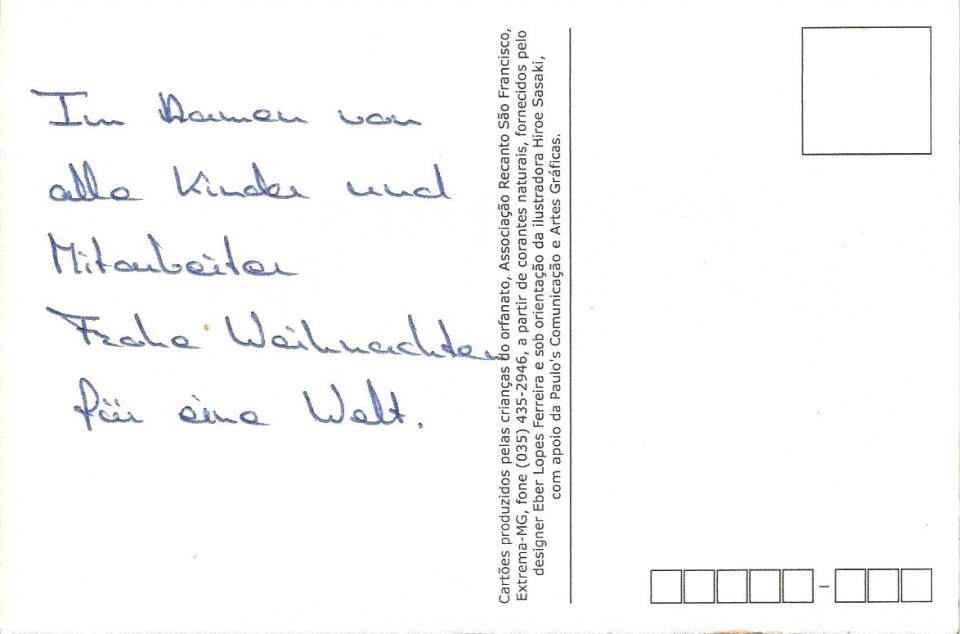 Im Namen von
alle Kinder und
Mitarbeiter
Frohe Weihnachten
für eine Welt.
Cartões produzidos pelas crianças do orfanato, Associação Recanto São Francisco,
Extrema-MG, fone (035) 435-2946, a partir de corantes naturais, fornecidos pelo
designer Eber Lopes Ferreira e sob orientação da ilustradora Hiroe Sasaki,
com apoio da Paulo's Comunicação e Artes Gráficas.